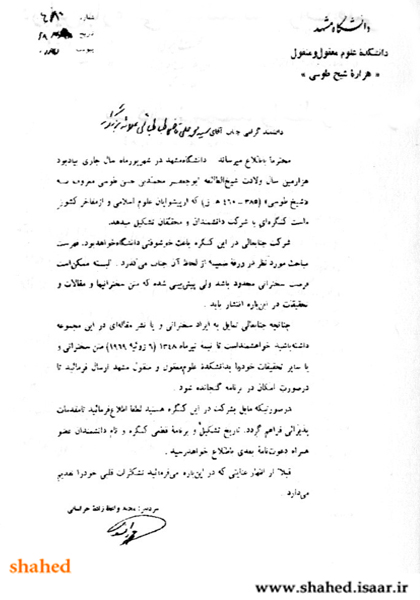 دانشگاه مشهد
دانشکدهٔ علوم معقول و منقول
« هزارهٔ شیخ طوسی »
شماره
تاریخ
پیوست
دانشمند گرامی جناب آقای سید محمد علی قاضی طباطبائی
محترماً باطلاع میرساند دانشگاه مشهد در شهریورماه سال جاری بیادبود
هزارمین سال ولادت شیخ‌الطائفه ابوجعفر محمدبن حسن طوسی معروف به
«شیخ طوسی» (۳۸۵-۴۶۰ ه ق) که از پیشوایان علوم اسلامی و از مفاخر کشور
ماست کنگره‌ای با شرکت دانشمندان و محققان تشکیل میدهد.
شرکت جنابعالی در این کنگره باعث خوشوقتی دانشگاه خواهد بود. فهرست
مباحث مورد نظر در ورقهٔ ضمیمه از لحاظ آن جناب میگذرد. البته ممکن است
فرصت سخنرانی محدود باشد ولی پیش‌بینی شده که متن سخنرانیها و مقالات و
تحقیقات در این‌باره انتشار یابد.
چنانچه جنابعالی تمایل به ایراد سخنرانی و یا نشر مقاله‌ای در این مجموعه
داشته‌باشید خواهشمنداست تا نیمه تیرماه ۱۳۴۸ (۶ ژوئیه ۱۹۶۹) متن سخنرانی و
یا سایر تحقیقات خود را بدانشکدهٔ علوم معقول و منقول مشهد ارسال فرمائید تا
درصورت امکان در برنامه گنجانده شود.
درصورتیکه مایل بشرکت در این کنگره هستید لطفاً اطلاع فرمائید تا مقدمات
پذیرائی فراهم گردد. تاریخ تشکیل و برنامهٔ قطعی کنگره و نام دانشمندان عضو
همراه دعوت‌نامهٔ بعدی باطلاع خواهد رسید.
قبلاً از اظهار عنایتی که در این‌باره میفرمائید تشکرات قلبی خود را تقدیم
میدارد.
سردبیر: محمد واعظ‌زاده خراسانی
shahed
www.shahed.isaar.ir